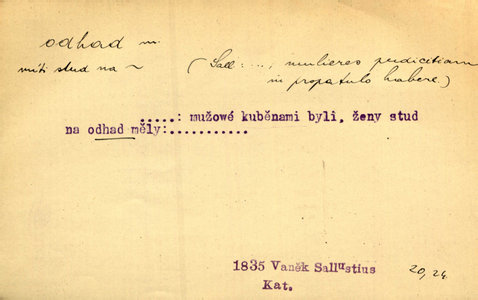 odhad m.
míti stud na ~ (Sall: ..., mulieres pudicitiam
in propatulo habere)
.....: mužové kuběnami byli, ženy stud
na odhad měly:...........
1835 Vaněk Sallustius 20, 24
Kat.